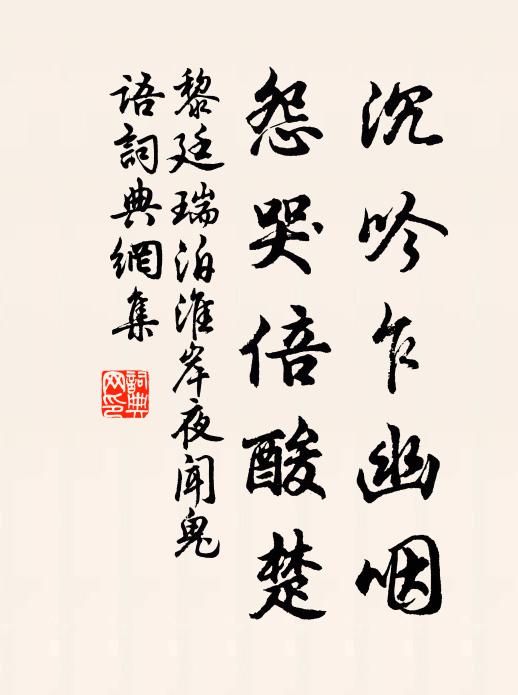 沉吟乍幽咽
怨哭倍酸楚
黎廷瑞泊淮岸夜聞鬼
語詞典網集
詞典网印